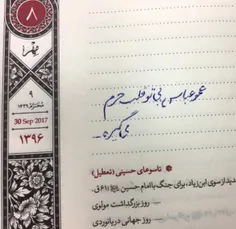 ۸
مهر
۹
محرم ۱۴۳۹
30 Sep 2017
۱۳۹۶
عمو عباس بی تو قلب حرم
می‌گیره...
تاسوعای حسینی (تعطیل)
شدید از سوی ابن‌زیاد، برای جنگ با امام حسین ۶۱ ق.
روز بزرگداشت مولوی
روز جهانی دریانوردی